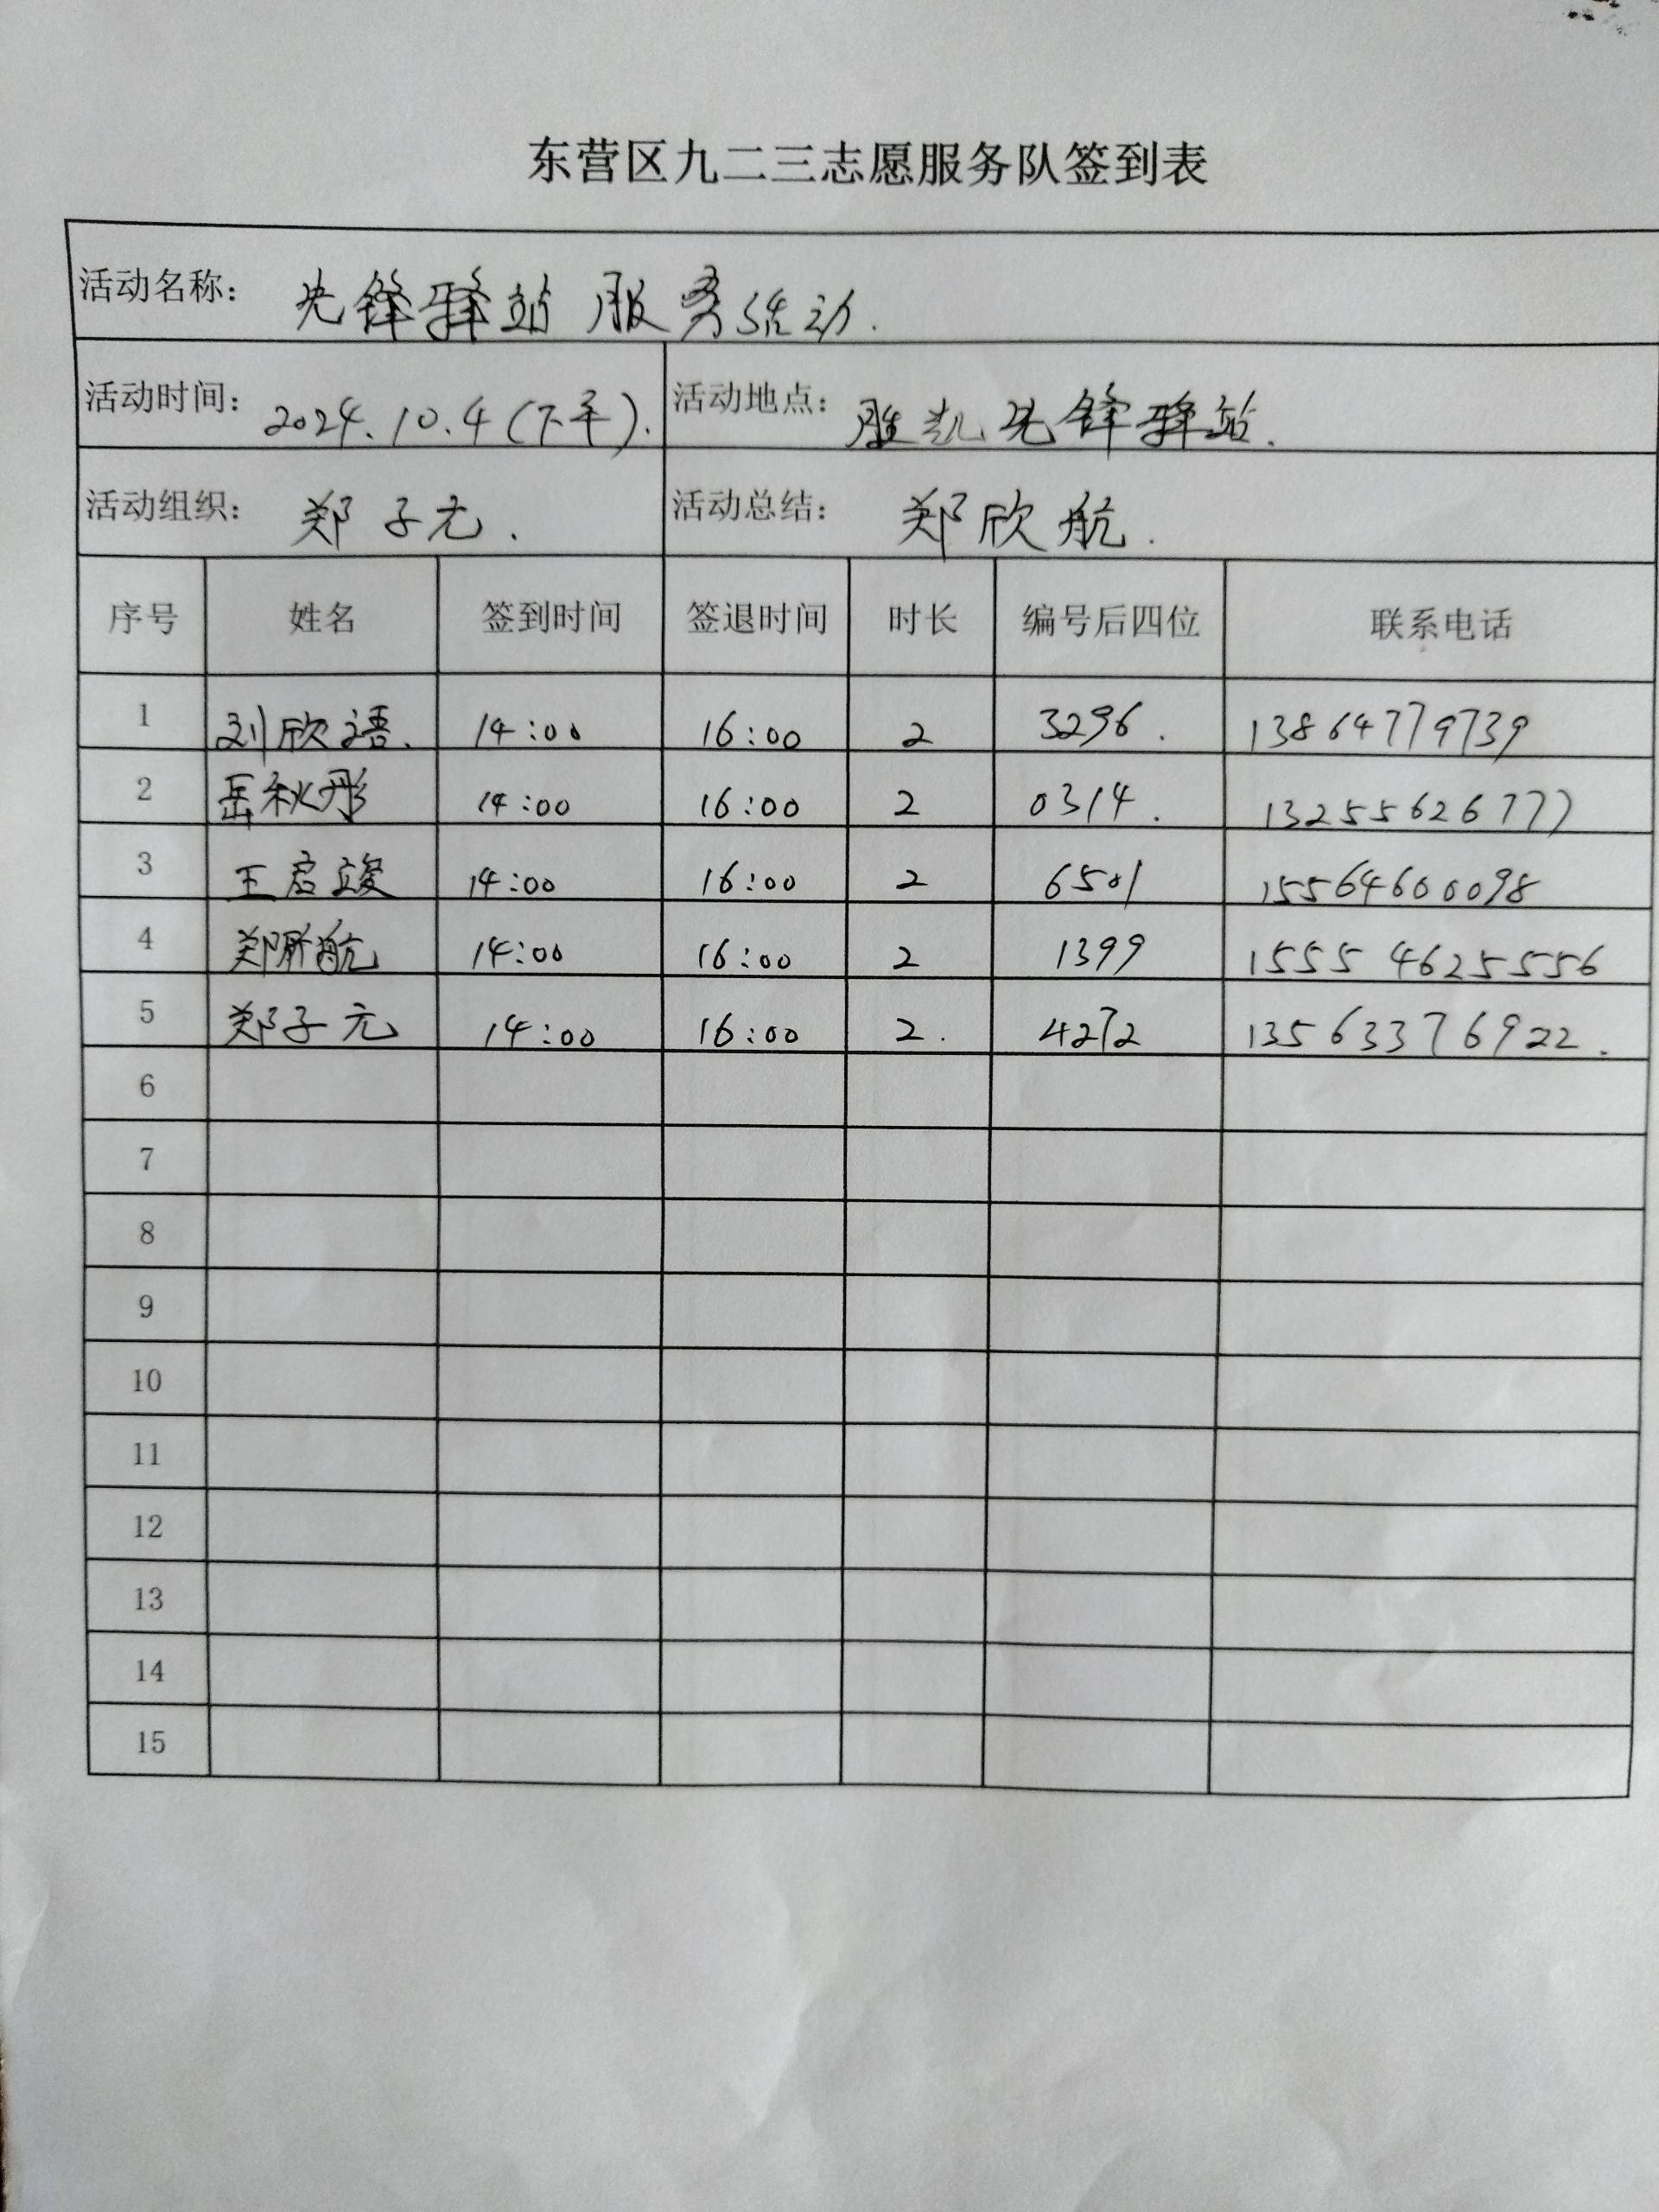 东营区九二三志愿服务队签到表
活动名称： 先锋驿站服务活动.
活动时间： 2024.10.4(下午). 活动地点： 胜凯先锋驿站.
活动组织： 郑子元. 活动总结： 郑欣航.
序号 姓名 签到时间 签退时间 时长 编号后四位 联系电话
1 刘欣语. 14:00 16:00 2 3296. 13864779739
2 岳秋彤 14:00 16:00 2 0314. 13255626777
3 王启竣 14:00 16:00 2 6501 15564600098
4 郑昕航 14:00 16:00 2 1399 15554625556
5 郑子元 14:00 16:00 2. 4272 13563376922.
6
7
8
9
10
11
12
13
14
15